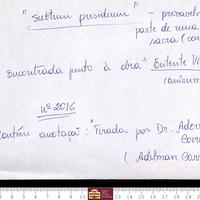 "subtum presidium" – provavelm
parte de uma
sacra (can
encontrada junto à obra "Intente V
nº 2016
contém anotação: "Tirada por Dr. Adem
Corre
( Adilman Corr